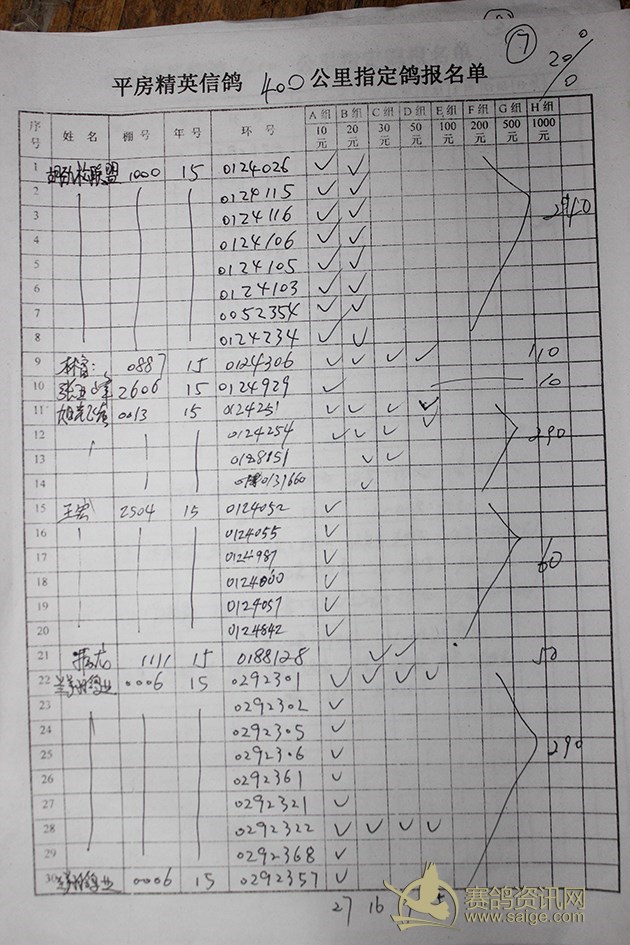 ⑦
20%
平房精英信鸽 400 公里指定鸽报名单
序号 姓名 棚号 年号 环号 A组10元 B组20元 C组30元 D组50元 E组100元 F组200元 G组500元 H组1000元
1 联盟 1000 15 0124026 ✓ ✓
2 0124115 ✓ ✓
3 0124116 ✓ ✓ 240
4 0124106 ✓ ✓
5 0124105 ✓ ✓
6 0124103 ✓ ✓
7 0052354 ✓ ✓
8 0124234 ✓ ✓
9 0887 15 0124306 ✓ ✓ ✓ ✓ 110
10 2606 15 0124929 ✓ 10
11 0013 15 0124251 ✓ ✓ ✓ ✓
12 0124254 ✓ ✓ ✓ ✓ 290
13 0188151 ✓ ✓
14 0131660 ✓
15 王宏 2504 15 0124052 ✓
16 0124055 ✓
17 0124987 ✓ 60
18 0124000 ✓
19 0124057 ✓
20 0124842 ✓
21 1111 15 0188128 ✓ ✓ 50
22 0006 15 0292301 ✓ ✓ ✓ ✓
23 0292302 ✓
24 0292305 ✓
25 0292306 ✓ 290
26 0292361 ✓
27 0292321 ✓
28 0292322 ✓ ✓ ✓ ✓
29 0292368 ✓
30 0006 15 0292357 ✓
27 16
赛鸽资讯网
www.saige.com